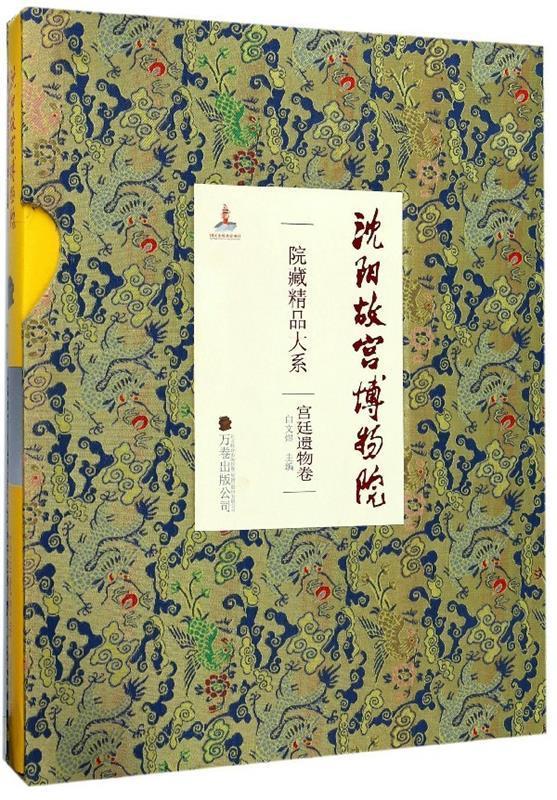 沈阳故宫博物院
院藏精品大系
宫廷遗物卷
白文煜 主编
万卷出版公司